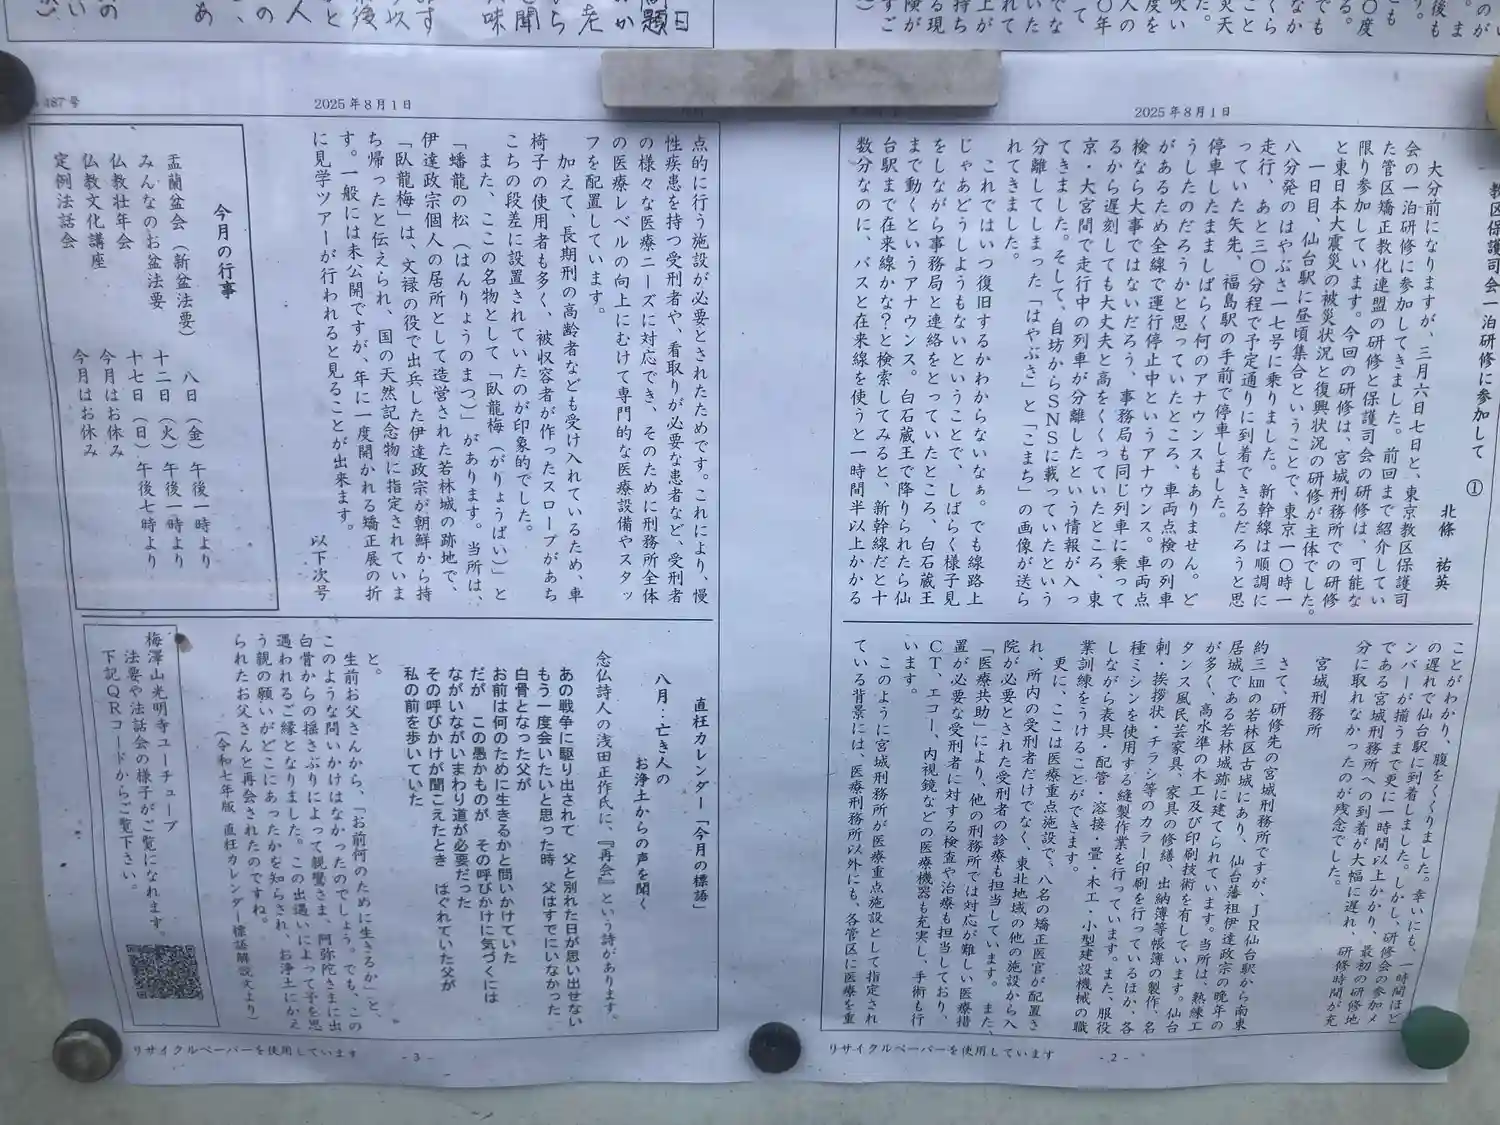 2025年8月1日
教区保護司会一泊研修に参加して ①
北條 祐英
大分前になりますが、三月六日七日と、東京教区保護司
会の一泊研修に参加してきました。前回まで紹介してい
た管区矯正教化連盟の研修と保護司会の研修は、可能な
限り参加しています。今回の研修は、宮城刑務所での研修
と東日本大震災の被災状況と復興状況の研修が主体でした。
一日目、仙台駅に昼頃集合ということで、東京一〇時一
八分発のはやぶさ一七号に乗りました。新幹線は順調に
走行、あと三〇分程で予定通りに到着できるだろうと思
っていた矢先、福島駅の手前で停車しました。
停車したまましばらく何のアナウンスもありません。ど
うしたのだろうかと思っていたところ、車両点検の列車
があるため全線で運行停止中というアナウンス。車両点
検なら大事ではないだろう、事務局も同じ列車に乗って
るから遅刻しても大丈夫と高をくくっていたところ、東
京・大宮間で走行中の列車が分離したという情報が入っ
てきました。そして、自坊からSNSに載っていたという
分離してしまった「はやぶさ」と「こまち」の画像が送ら
れてきました。
これではいつ復旧するかわからないなぁ。でも線路上
じゃあどうしようもないということで、しばらく様子見
をしながら事務局と連絡をとっていたところ、白石蔵王
まで動くというアナウンス。白石蔵王で降りられたら仙
台駅まで在来線かな?と検索してみると、新幹線だと十
数分なのに、バスと在来線を使うと一時間半以上かかる
ことがわかり、腹をくくりました。幸いにも、一時間ほど
の遅れで仙台駅に到着しました。しかし、研修会の参加メ
ンバーが揃うまで更に一時間以上かかり、最初の研修地
である宮城刑務所への到着が大幅に遅れ、研修時間が充
分に取れなかったのが残念でした。
宮城刑務所
さて、研修先の宮城刑務所ですが、JR仙台駅から南東
約三kmの若林区古城にあり、仙台藩祖伊達政宗の晩年の
居城である若林城跡に建てられています。当所は、熟練工
が多く、高水準の木工及び印刷技術を有しています。仙台
タンス風民芸家具、家具の修繕、出納簿等帳簿の製作、名
刺・挨拶状・チラシ等のカラー印刷を行っているほか、各
種ミシンを使用する縫製作業を行っています。また、服役
しながら表具・配管・溶接・畳・木工・小型建設機械の職
業訓練をうけることができます。
更に、ここは医療重点施設で、八名の矯正医官が配置さ
れ、所内の受刑者だけでなく、東北地域の他の施設から入
院が必要とされた受刑者の診療も担当しています。また、
「医療共助」により、他の刑務所では対応が難しい医療措
置が必要な受刑者に対する検査や治療も担当しており、
CT、エコー、内視鏡などの医療機器も充実し、手術も行
います。
このように宮城刑務所が医療重点施設として指定され
ている背景には、医療刑務所以外にも、各管区に医療を重
リサイクルペーパーを使用しています
- 2 -
487号
2025年8月1日
点的に行う施設が必要とされたためです。これにより、慢
性疾患を持つ受刑者や、看取りが必要な患者など、受刑者
の様々な医療ニーズに対応でき、そのために刑務所全体
の医療レベルの向上にむけて専門的な医療設備やスタッ
フを配置しています。
加えて、長期刑の高齢者なども受け入れているため、車
椅子の使用者も多く、被収容者が作ったスロープがあち
こちの段差に設置されていたのが印象的でした。
また、ここの名物として「臥龍梅(がりょうばい)」と
「蟠龍の松(はんりょうのまつ)」があります。当所は、
伊達政宗個人の居所として造営された若林城の跡地で、
「臥龍梅」は、文禄の役で出兵した伊達政宗が朝鮮から持
ち帰ったと伝えられ、国の天然記念物に指定されていま
す。一般には未公開ですが、年に一度開かれる矯正展の折
に見学ツアーが行われると見ることが出来ます。
以下次号
今月の行事
盂蘭盆会(新盆法要) 八日(金)午後一時より
みんなのお盆法要 十二日(火)午後一時より
仏教壮年会 十七日(日)午後七時より
仏教文化講座 今月はお休み
定例法話会 今月はお休み
直枉カレンダー「今月の標語」
八月:亡き人の
お浄土からの声を聞く
念仏詩人の浅田正作氏に、『再会』という詩があります。
あの戦争に駆り出されて 父と別れた日が思い出せない
もう一度会いたいと思った時 父はすでにいなかった
白骨となった父が
お前は何のために生きるかと問いかけていた
だが この愚かものが その呼びかけに気づくには
ながいながいまわり道が必要だった
その呼びかけが聞こえたとき はぐれていた父が
私の前を歩いていた
と。
生前お父さんから、「お前何のために生きるか」と、
このような問いかけはなかったのでしょう。でも、この
白骨からの揺さぶりによって親鸞さま、阿弥陀さまに出
遇われるご縁となりました。この出遇いによって子を思
う親の願いがどこにあったかを知らされ、お浄土にかえ
られたお父さんと再会されたのですね。
(令和七年版 直枉カレンダー標語解説文より)
梅澤山光明寺ユーチューブ
法要や法話会の様子がご覧になれます。
下記QRコードからご覧下さい。
リサイクルペーパーを使用しています
- 3 -